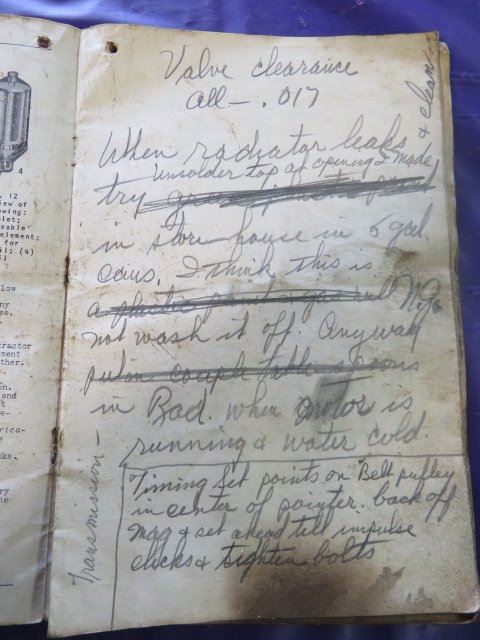 4
(2
view of
owing:
let;
cable'
element;
for
il; (4)
il
low
ny
se.
ractor
ment
ther.
on.
and
t
e-
rica-
e
ks.
ry
e
Valve clearance
all — .017
& clean
When radiator leaks
unsolder top at opening I made
try
in store house in 5 gal
cans. I think this is
a plastic paint & gas will
not wash it off. Anyway
put in couple table spoons
in Rad. when motor is
running & water cold.
Transmission —
Timing set points on Belt pulley
in center of pointer. back off
mag & set ahead till impulse
clicks & tighten bolts